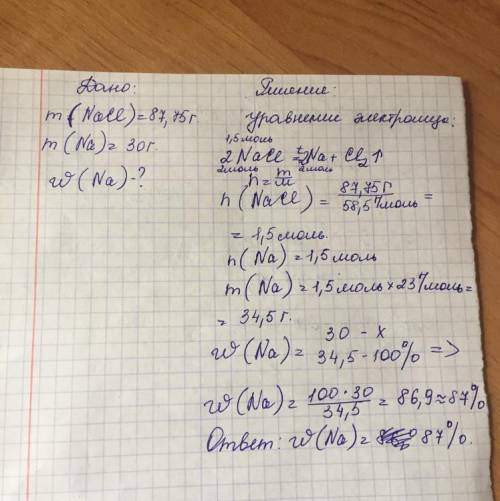 Дано:
m (NaCl) = 87,75г.
m (Na) = 30г.
w (Na) - ?
Решение:
уравнение электролиза:
1,5моль
2NaCl = 2Na + Cl2↑
2моль 2моль
n = m/M
n (NaCl) = 87,75г / 58,5г/моль =
= 1,5моль.
n (Na) = 1,5моль
m (Na) = 1,5моль × 23г/моль =
= 34,5г.
30 - x
w (Na) = 34,5 - 100% =>
w (Na) = 100·30 / 34,5 = 86,9 ≈ 87%
Ответ: w (Na) = 87%.